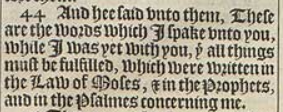 44 And hee said vnto them, These
are the words which I spake vnto you,
while I was yet with you, ẏ all things
must be fulfilled, which were written in
the Law of Moses, & in the Prophets,
and in the Psalmes concerning me.